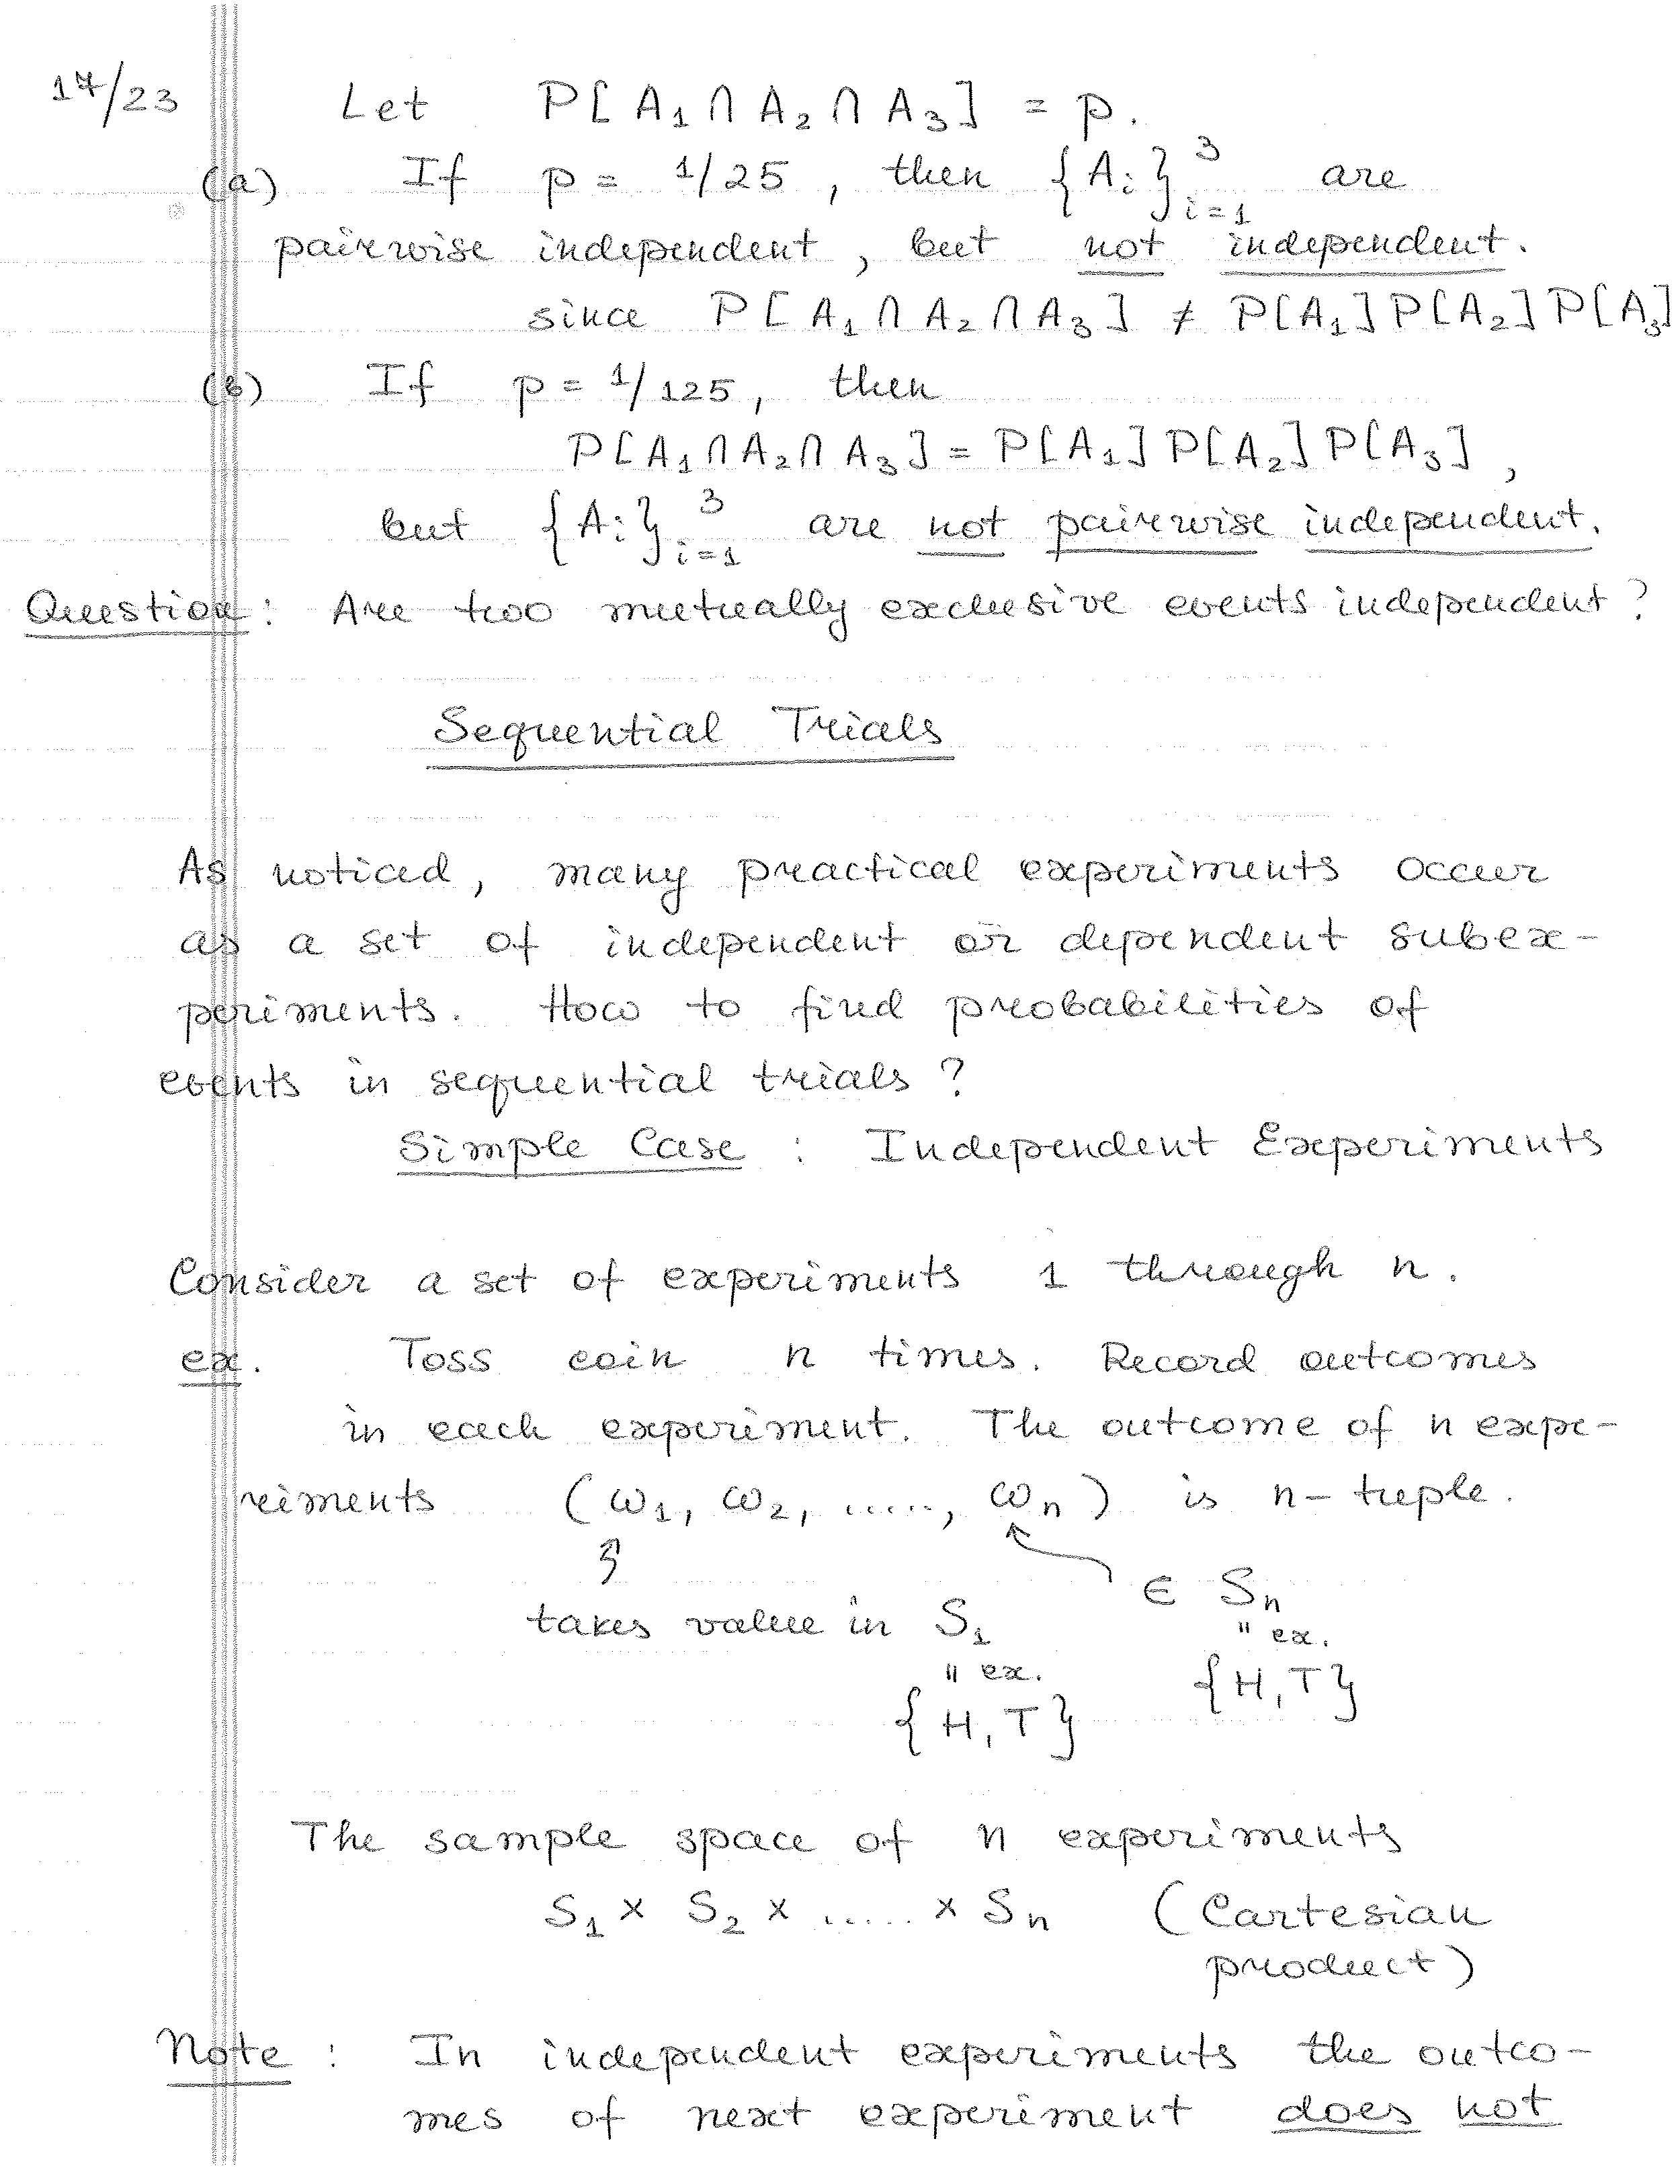 17/23 Let P[A₁∩A₂∩A₃] = p.
(a) If p = 1/25, then {Aᵢ}³ᵢ₌₁ are
pairwise independent, but not independent.
since P[A₁∩A₂∩A₃] ≠ P[A₁]P[A₂]P[A₃]
(b) If p = 1/125, then
P[A₁∩A₂∩A₃] = P[A₁]P[A₂]P[A₃],
but {Aᵢ}³ᵢ₌₁ are not pairwise independent.
Question: Are two mutually exclusive events independent?
Sequential Trials
As noticed, many practical experiments occur
as a set of independent or dependent subex-
periments. How to find probabilities of
events in sequential trials?
Simple Case : Independent Experiments
Consider a set of experiments 1 through n.
ex. Toss coin n times. Record outcomes
in each experiment. The outcome of n expe-
riments (ω₁, ω₂, ....., ωₙ) is n-tuple.
∈ Sₙ
takes value in S₁
" ex.
" ex.
{H,T}
{H,T}
The sample space of n experiments
S₁ × S₂ × ..... × Sₙ (Cartesian
product)
Note : In independent experiments the outco-
mes of next experiment does not